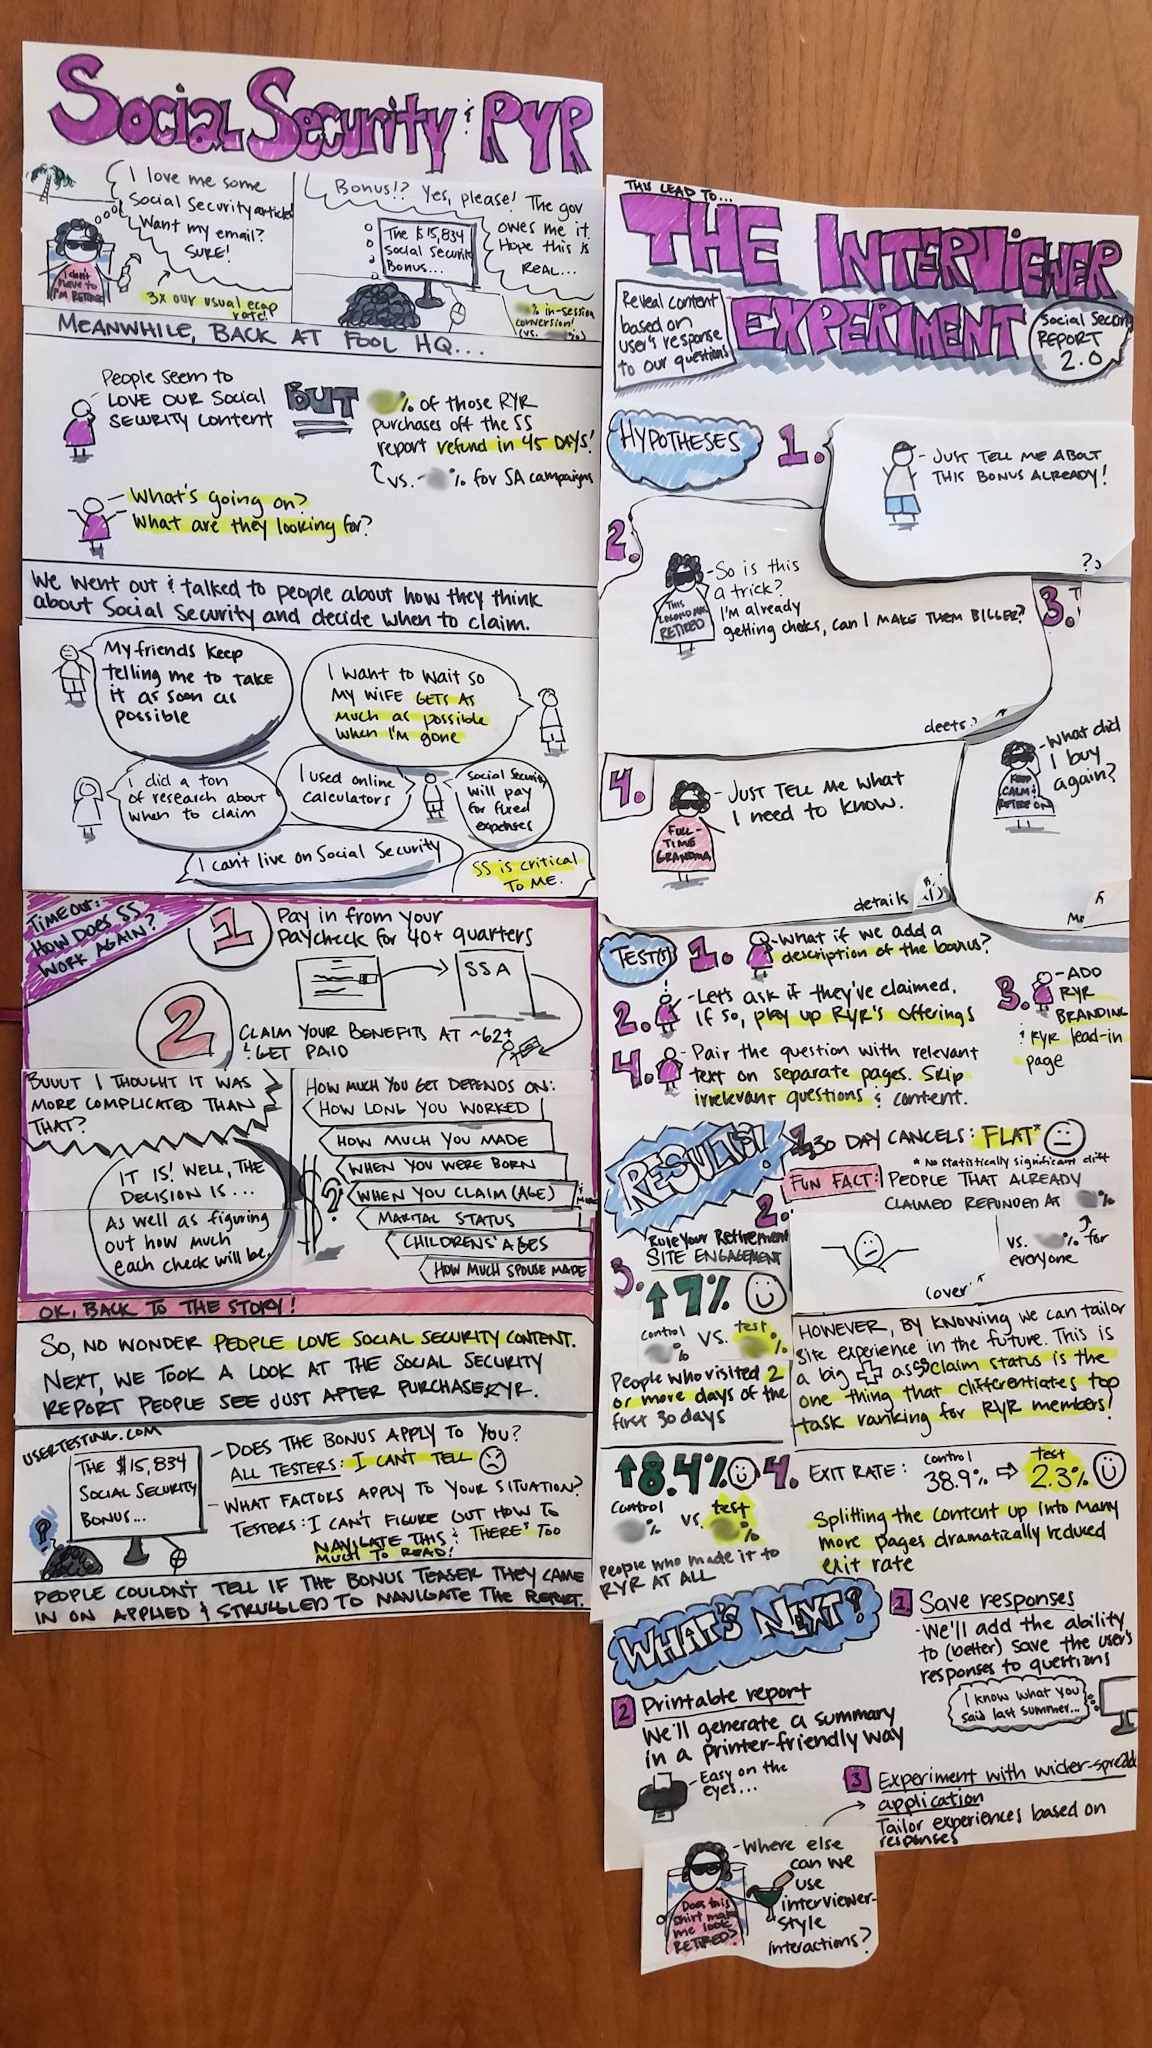 Social Security & RYR
I love me some
Social Security articles
Want my email?
SURE!
I don't
have to
I'm RETIRED
3x our usual ecap
rate!
Bonus!? Yes, please! The gov
owes me it.
Hope this is
REAL...
The $15,834
Social Security
Bonus...
% in-session
conversion!
(vs. %)
MEANWHILE, BACK AT FOOL HQ...
People seem to
LOVE OUR SOCIAL
SECURITY CONTENT
BUT
% of those RYR
purchases off the SS
report refund in 45 DAYS!
vs. % for SA campaigns
What's going on?
What are they looking for?
We went out & talked to people about how they think
about Social Security and decide when to claim.
My friends keep
telling me to take
it as soon as
possible
I want to wait so
my wife GETS AS
much as possible
when I'm gone
I did a ton
of research about
when to claim
I used online
calculators
Social Security
will pay
for fixed
expenses
I can't live on Social Security
SS is critical
TO ME.
TIME OUT:
HOW DOES SS
WORK AGAIN?
1
Pay in from your
Paycheck for 40+ quarters
SSA
2
CLAIM YOUR BENEFITS AT ~62+
& GET PAID
BUUUT I THOUGHT IT WAS
MORE COMPLICATED THAN
THAT?
IT IS! WELL, THE
DECISION IS...
As well as figuring
out how much
each check will be.
$?
HOW MUCH YOU GET DEPENDS ON:
HOW LONG YOU WORKED
HOW MUCH YOU MADE
WHEN YOU WERE BORN
WHEN YOU CLAIM (AGE)
& MORE
MARITAL STATUS
CHILDRENS' AGES
HOW MUCH SPOUSE MADE
OK, BACK TO THE STORY!
SO, NO WONDER PEOPLE LOVE SOCIAL SECURITY CONTENT.
NEXT, WE TOOK A LOOK AT THE SOCIAL SECURITY
REPORT PEOPLE SEE JUST AFTER PURCHASE RYR.
USERTESTING.COM
THE $15,834
SOCIAL SECURITY
BONUS...
?
- DOES THE BONUS APPLY TO YOU?
ALL TESTERS: I CAN'T TELL
- WHAT FACTORS APPLY TO YOUR SITUATION?
TESTERS: I CAN'T FIGURE OUT HOW TO
NAVIGATE THIS & THERE'S TOO
MUCH TO READ!
PEOPLE COULDN'T TELL IF THE BONUS TEASER THEY CAME
IN ON APPLIED & STRUGGLED TO NAVIGATE THE REPORT.
THIS LEAD TO...
THE INTERVIEWER
EXPERIMENT
Reveal content
based on
user's response
to our questions
Social Secur
REPORT
2.0
HYPOTHESES
1.
- JUST TELL ME ABOUT
THIS BONUS ALREADY!
2.
- So is this
a trick?
I'm already
getting checks, can I MAKE THEM BIGGER?
RETIRED
deets?
3.
- What did
I buy
again?
KEEP
CALM &
RETIRE ON
4.
- JUST TELL ME WHAT
I need to know.
FULL-
TIME
GRANDMA
details
TEST(S)
1.
- What if we add a
description of the bonus?
2.
- Let's ask if they've claimed.
If so, play up RYR's offerings
3.
- ADD
RYR
BRANDING
& RYR lead-in
page
4.
- Pair the question with relevant
text on separate pages. Skip
irrelevant questions & content.
RESULTS!
1. 30 DAY CANCELS: FLAT*
* No statistically significant diff
2.
FUN FACT: PEOPLE THAT ALREADY
CLAIMED REFUNDED AT %
vs. % for
everyone
(over
HOWEVER, BY KNOWING we can tailor
site experience in the future. This is
a big + as claim status is the
one thing that differentiates top
task ranking for RYR members!
3.
Rule Your Retirement
SITE ENGAGEMENT
↑7%
control
% VS.
test
%
People who visited 2
or more days of the
first 30 days
↑8.4%
control
% vs.
test
%
people who made it to
RYR AT ALL
4.
EXIT RATE:
control
38.9% ⇒
test
2.3%
Splitting the content up into many
more pages dramatically reduced
exit rate
WHAT'S NEXT?
1 Save responses
- We'll add the ability
to (better) save the user's
responses to questions
I know what you
said last summer...
2 Printable report
We'll generate a summary
in a printer-friendly way
- Easy on the
eyes...
3 Experiment with wider-spread
application
Tailor experiences based on
responses
- Where else
can we
use
interviewer-
style
interactions?
Does this
shirt make
me look
RETIRED?